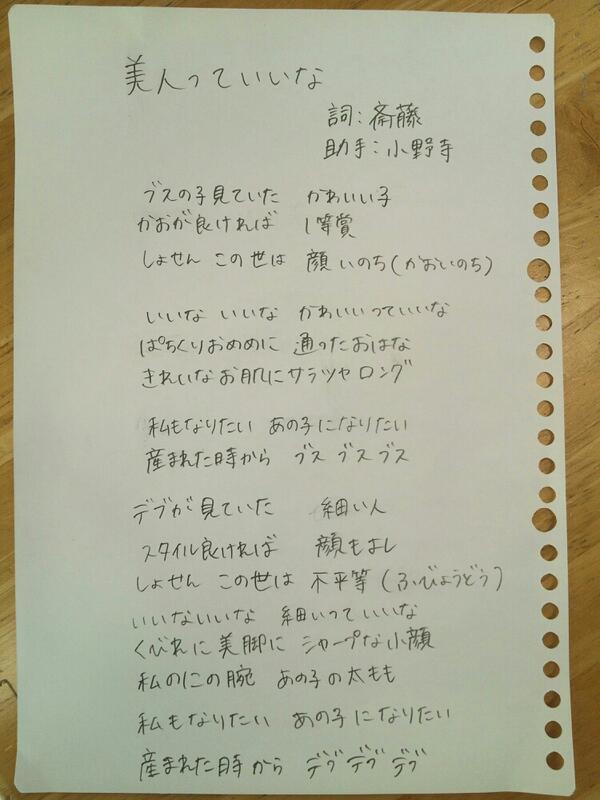 美人っていいな
詞：斎藤
助手：小野寺
ブスの子見ていた かわいい子
かおが良ければ 1等賞
しょせん この世は 顔いのち(かおいのち)
いいな いいな かわいいっていいな
ぱちくりおめめに 通ったおはな
きれいなお肌にサラツヤロング
私もなりたい あの子になりたい
産まれた時から ブス ブス ブス
デブが見ていた 細い人
スタイル良ければ 顔もよし
しょせん この世は 不平等(ふびょうどう)
いいないいな 細いっていいな
くびれに美脚に シャープな小顔
私のにの腕 あの子の太もも
私もなりたい あの子になりたい
産まれた時から デブ デブ デブ